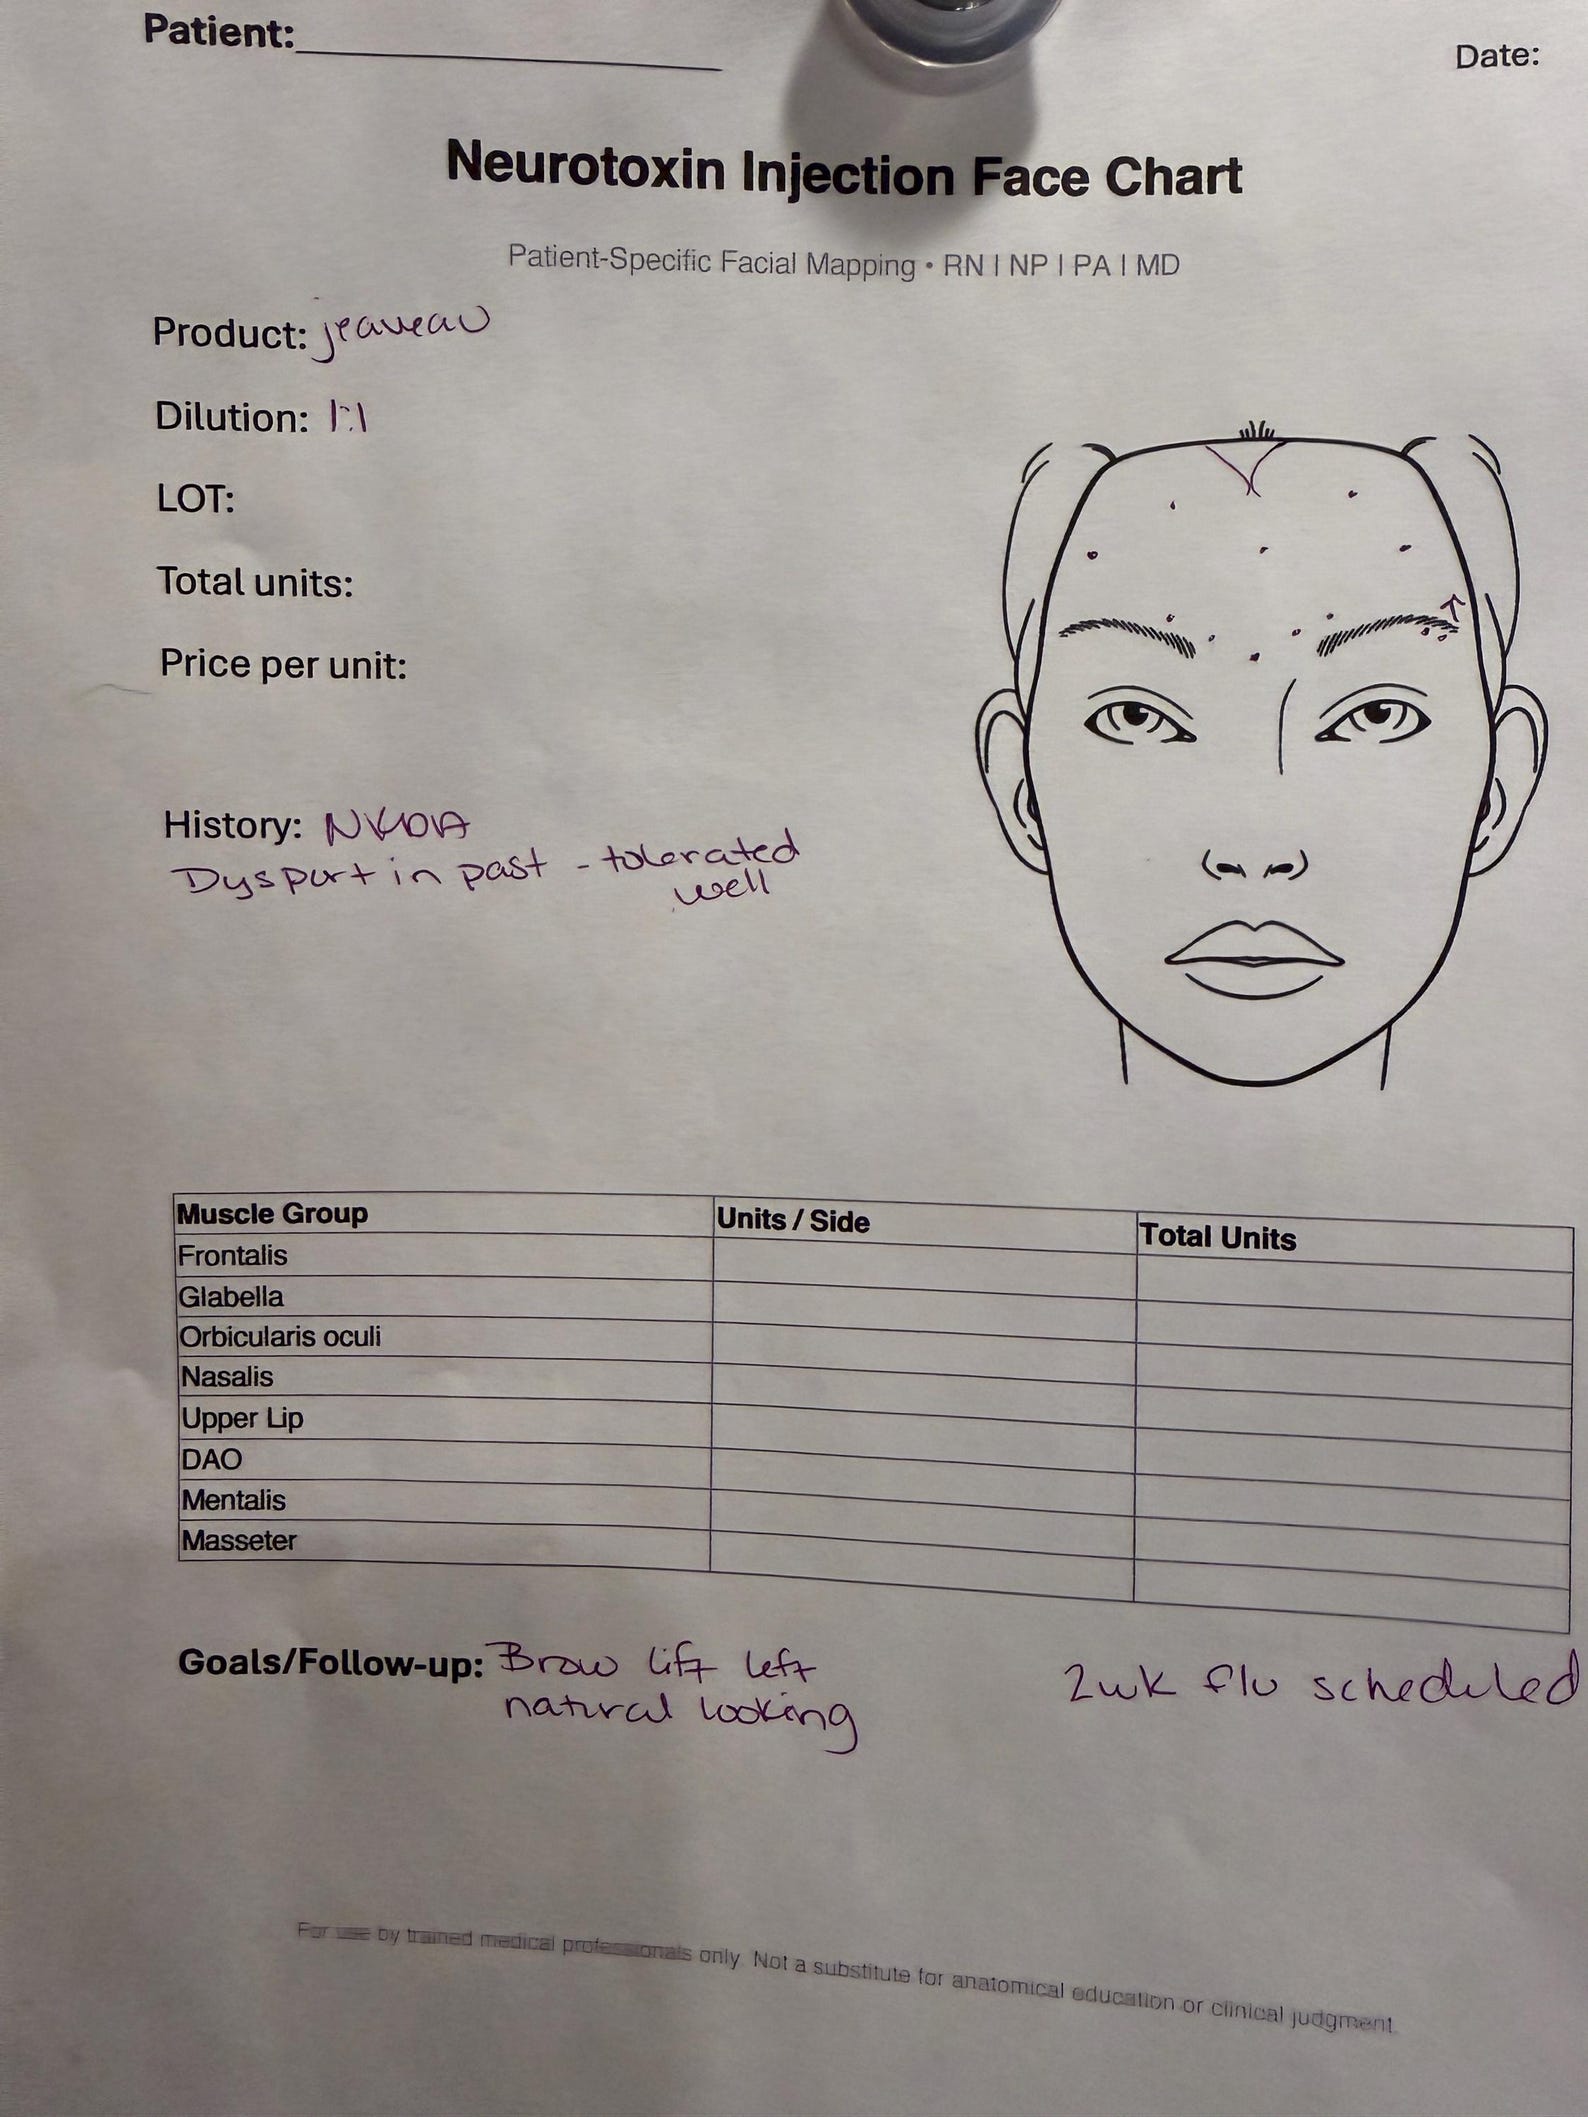 Patient:
Date:
Neurotoxin Injection Face Chart
Patient-Specific Facial Mapping • RN | NP | PA | MD
Product: jeaveau
Dilution: 1:1
LOT:
Total units:
Price per unit:
History: NKDA
Dysport in past - tolerated
well
Muscle Group Units / Side Total Units
Frontalis
Glabella
Orbicularis oculi
Nasalis
Upper Lip
DAO
Mentalis
Masseter
Goals/Follow-up: Brow lift left
natural looking
2wk f/u scheduled
For use by trained medical professionals only. Not a substitute for anatomical education or clinical judgment.